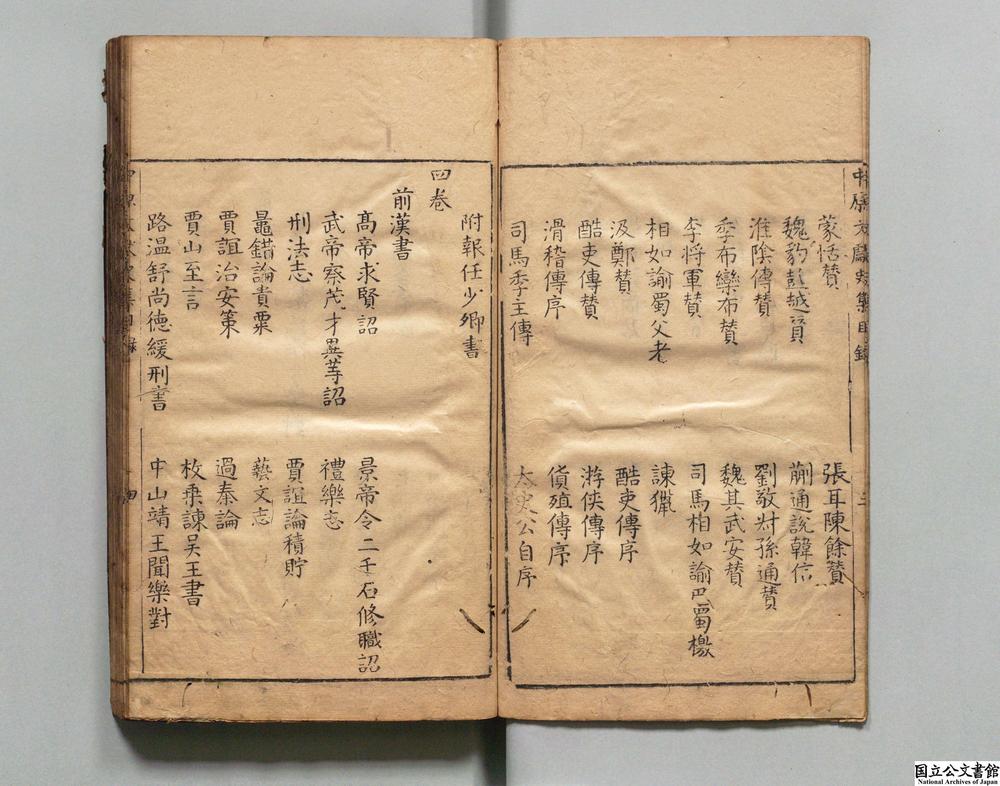 中原文獻史集目錄
三
蒙恬贊
張耳陳餘贊
魏豹彭越贊
蒯通說韓信
淮陰傳贊
劉敬叔孫通贊
季布欒布贊
魏其武安贊
李将軍贊
司馬相如諭巴蜀檄
相如諭蜀父老
諌獵
汲鄭贊
酷吏傳序
酷吏傳贊
游俠傳序
滑稽傳序
貨殖傳序
司馬季主傳
太史公自序
附報任少卿書
四卷
前漢書
髙帝求賢詔
景帝令二千石修職詔
武帝察茂才異等詔
禮樂志
刑法志
賈誼論積貯
鼂錯論貴粟
藝文志
賈誼治安策
過秦論
賈山至言
枚乗諌吴王書
路温舒尚徳緩刑書
中山靖王聞樂對
四
国立公文書館
National Archives of Japan